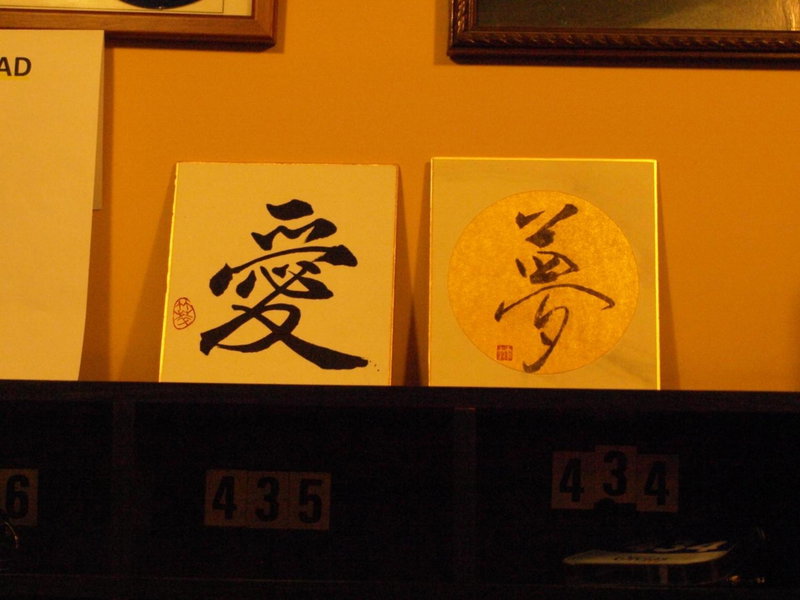 AD
愛
夢
6
435
434